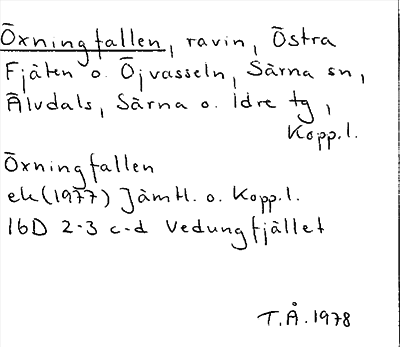 Öxningfallen, ravin, Östra
Fjäten o. Öjvasseln, Särna sn,
Älvdals, Särna o. Idre tg,
Kopp.l.
Öxningfallen
ek(1977) Jämtl. o. Kopp.l.
16D 2-3 c-d Vedungfjället
T.Å. 1978